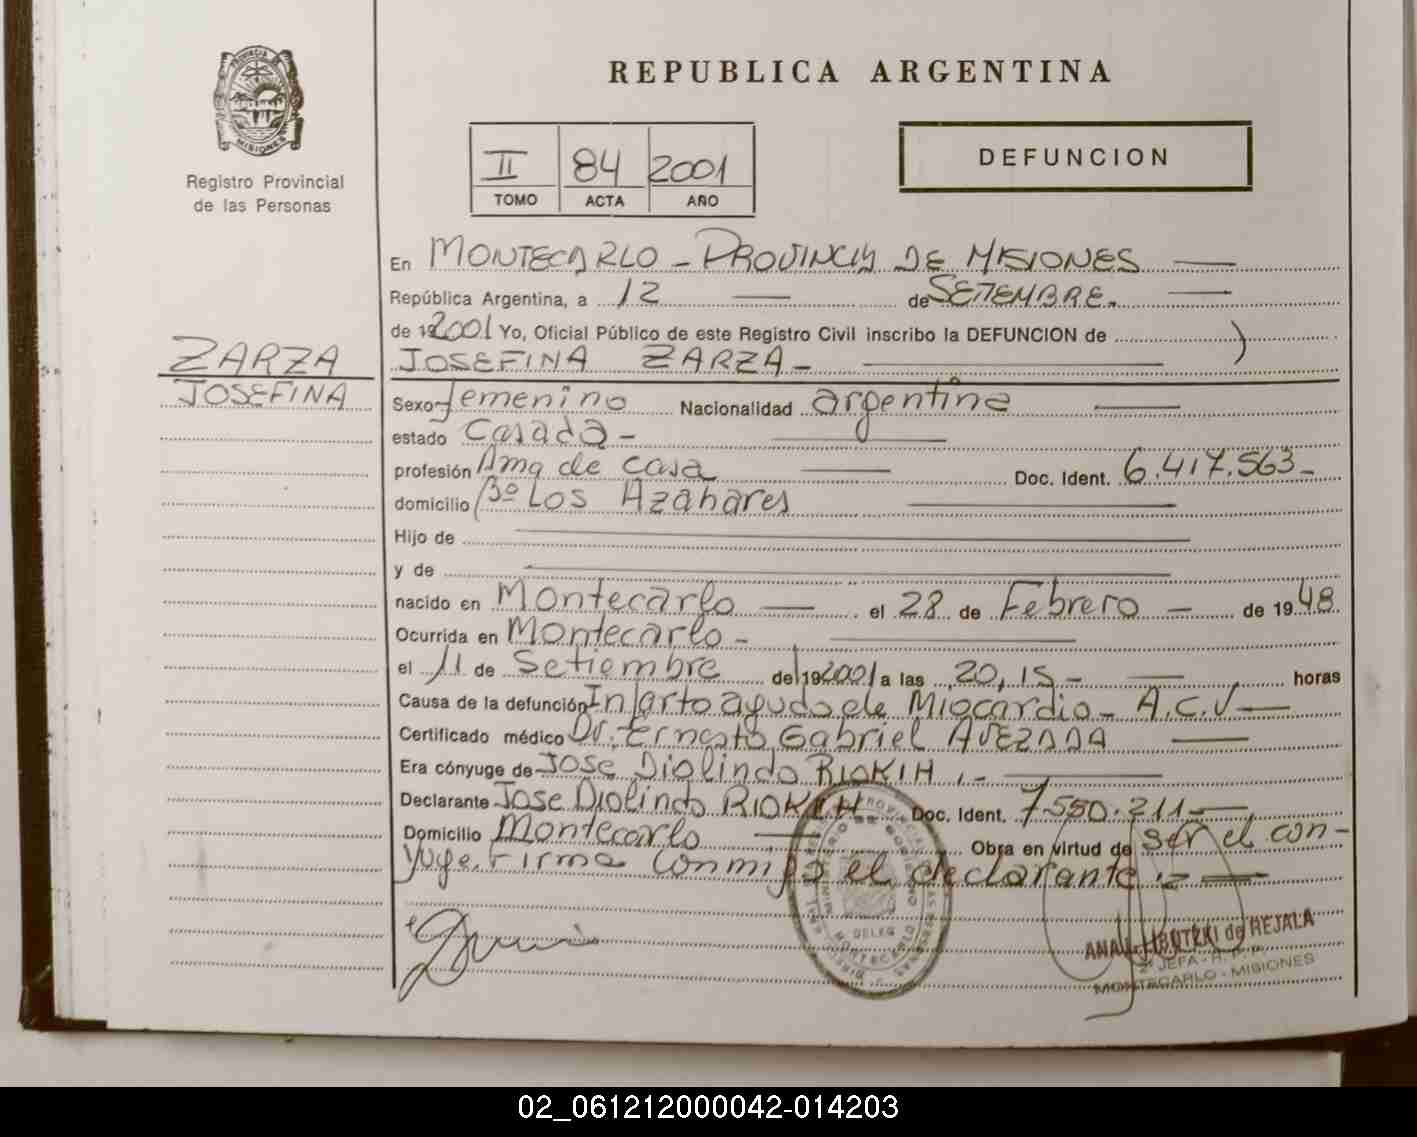 PROVINCIA DE
MISIONES
Registro Provincial
de las Personas
REPUBLICA ARGENTINA
II 84 2001
TOMO ACTA AÑO
DEFUNCION
En MONTECARLO - PROVINCIA DE MISIONES
República Argentina, a 12 de SETIEMBRE.
de 192001 Yo, Oficial Público de este Registro Civil inscribo la DEFUNCION de
ZARZA
JOSEFINA
JOSEFINA ZARZA -
Sexo femenino Nacionalidad argentina
estado Casada -
profesión Ama de casa Doc. Ident. 6.417.563-
domicilio Bº Los Azahares
Hijo de
y de
nacido en Montecarlo el 28 de Febrero de 1948
Ocurrida en Montecarlo -
el 11 de Setiembre de 192001 a las 20,15 - horas
Causa de la defunción Infarto agudo de Miocardio - A.C.V
Certificado médico Dr. Ernesto Gabriel AVEZADA
Era cónyuge de Jose Diolindo RIOKIH . -
Declarante Jose Diolindo RIOKIH Doc. Ident. 7.550.211-
Domicilio Montecarlo Obra en virtud de ser el con-
yuge. Firma conmigo el declarante . -
MINISTERIO DE GOBIERNO
DELEG
MONTECARLO
ANA de REJALA
2ª JEFA - R.
MONTECARLO - MISIONES
02_061212000042-014203